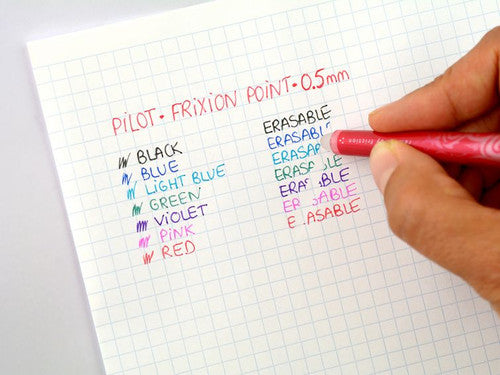 PILOT • FRIXION POINT • 0.5mm
BLACK
BLUE
LIGHT BLUE
GREEN
VIOLET
PINK
RED
ERASABLE
ERASABL
ERASA
ERAS BLE
ERAS BLE
ERA ABLE
E ASABLE
frixion